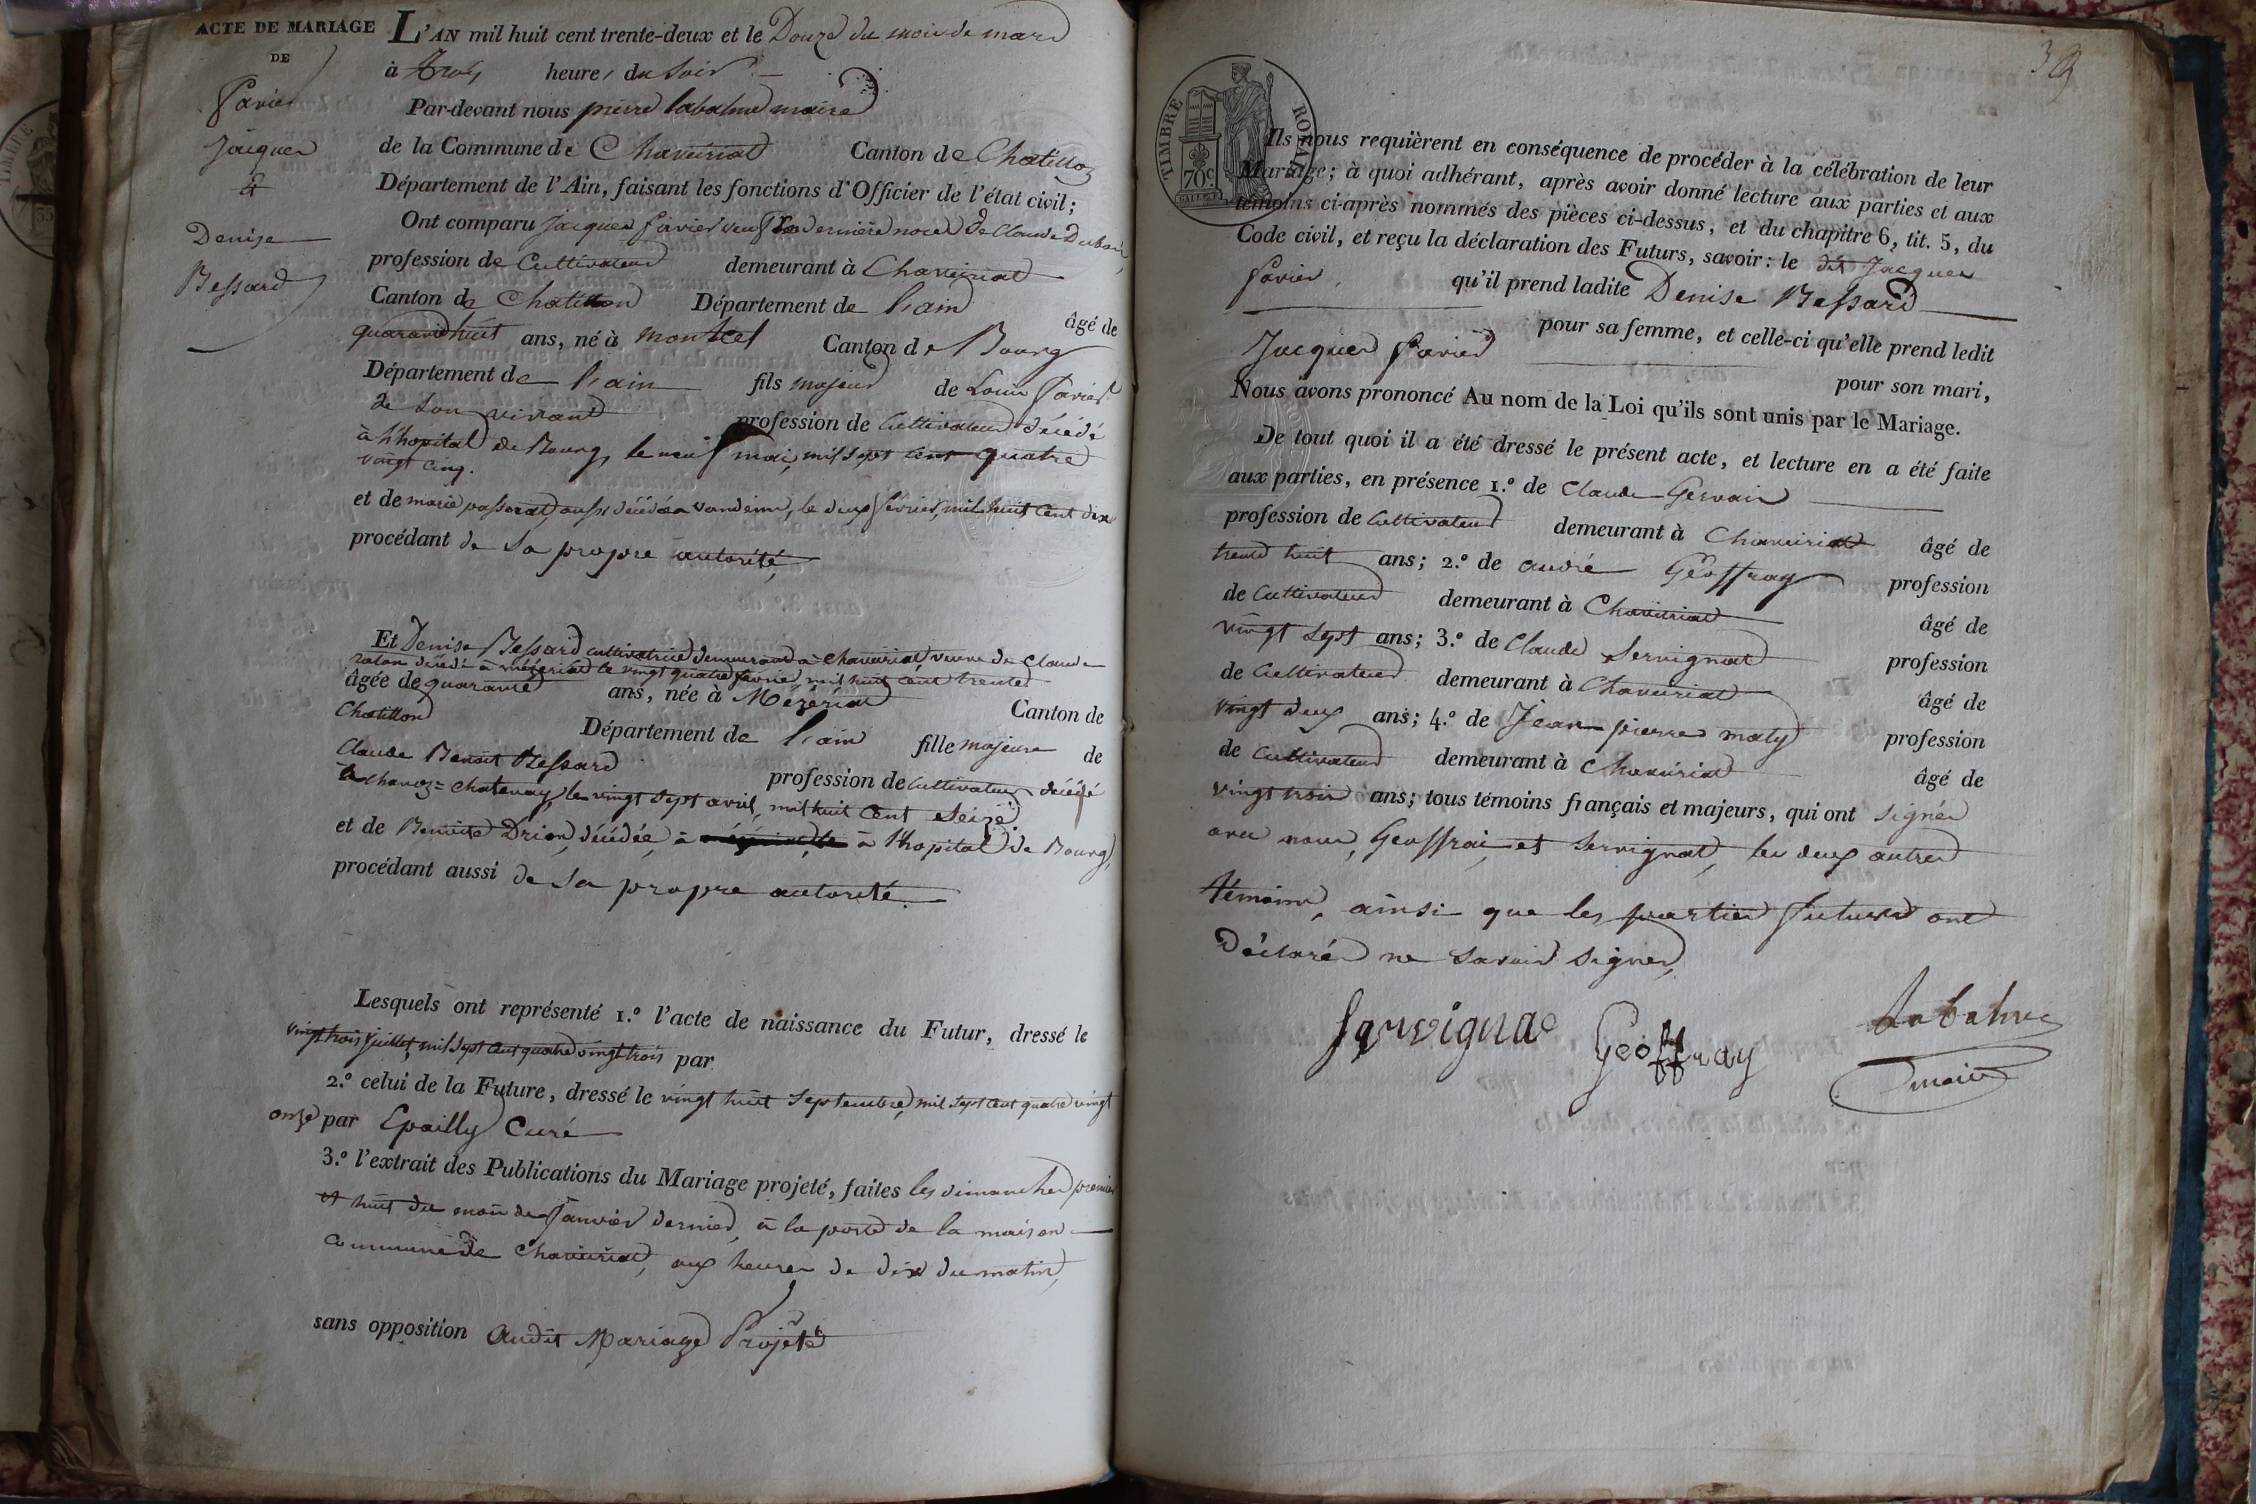 ACTE DE MARIAGE
DE
Favier
Jacques
&
Denise
Bessard
L'AN mil huit cent trente-deux et le Douze du mois de mars
à trois heures du soir
Par-devant nous pierre labalme maire
de la Commune de Chaveiriat Canton de Chatillon
Département de l'Ain, faisant les fonctions d'Officier de l'état civil;
Ont comparu Jacques favier veuf en dernière noces de Claude Dubois,
profession de Cultivateur demeurant à Chaveiriat
Canton de Chatillon Département de l'ain âgé de
quarante huit ans, né à montcet Canton de Bourg
Département de l'ain fils majeur de Louis favier
de son vivant profession de Cultivateur décédé
à l'hopital de Bourg, le neuf mai, mil sept cent quatre
vingt cinq.
et de marie passerat, aussi décédée a vandeins, le deux février, mil huit cent dix
procédant de sa propre autorité,
Et Denise Bessard cultivatrice demeurant à chaveiriat, veuve de Claude
raton décédé à mézériat le vingt quatre fevrié, mil huit cent trente
âgée de quarante ans, née à Mézériat Canton de
Chatillon Département de l'ain fille majeure de
Claude Benoit Bessard profession de Cultivateur décédé
à chanoz=chatenay, le vingt sept avril, mil huit cent seize
et de Benoite Drion, décédée, à à l'hopital de Bourg,
procédant aussi de sa propre autorité.
Lesquels ont représenté 1.º l'acte de naissance du Futur, dressé le
vingt trois juillet, mil sept cent quatre vingt trois par
2.º celui de la Future, dressé le vingt huit septembre, mil sept cent quatre vingt
onze par Epailly Curé
3.º l'extrait des Publications du Mariage projeté, faites les dimanches premier
et huit du mois de Janvier dernier, à la porte de la maison
commune de Chaveiriat, aux heures de dix du matin,
sans opposition audit Mariage Projeté
39
TIMBRE ROYAL
70 c
Ils nous requièrent en conséquence de procéder à la célébration de leur
Mariage; à quoi adhérant, après avoir donné lecture aux parties et aux
témoins ci-après nommés des pièces ci-dessus, et du chapitre 6, tit. 5, du
Code civil, et reçu la déclaration des Futurs, savoir: le dit Jacques
favier, qu'il prend ladite Denise Bessard
pour sa femme, et celle-ci qu'elle prend ledit
Jacques favier pour son mari,
Nous avons prononcé Au nom de la Loi qu'ils sont unis par le Mariage.
De tout quoi il a été dressé le présent acte, et lecture en a été faite
aux parties, en présence 1.º de Claude Gervais
profession de Cultivateur demeurant à Chaveiriat âgé de
trente huit ans; 2.º de andré Géoffray profession
de Cultivateur demeurant à Chaveiriat âgé de
vingt sept ans; 3.º de Claude Servignat profession
de Cultivateur demeurant à Chaveiriat âgé de
vingt deux ans; 4.º de Jean pierre maty profession
de Cultivateur demeurant à Chaveiriat âgé de
vingt trois ans; tous témoins français et majeurs, qui ont signés
avec nous, Geoffrai, et Servignat, les deux autres
témoins, ainsi que les parties futures ont
déclarés ne savoir signer,
Servignat Geoffray Labalme
maire